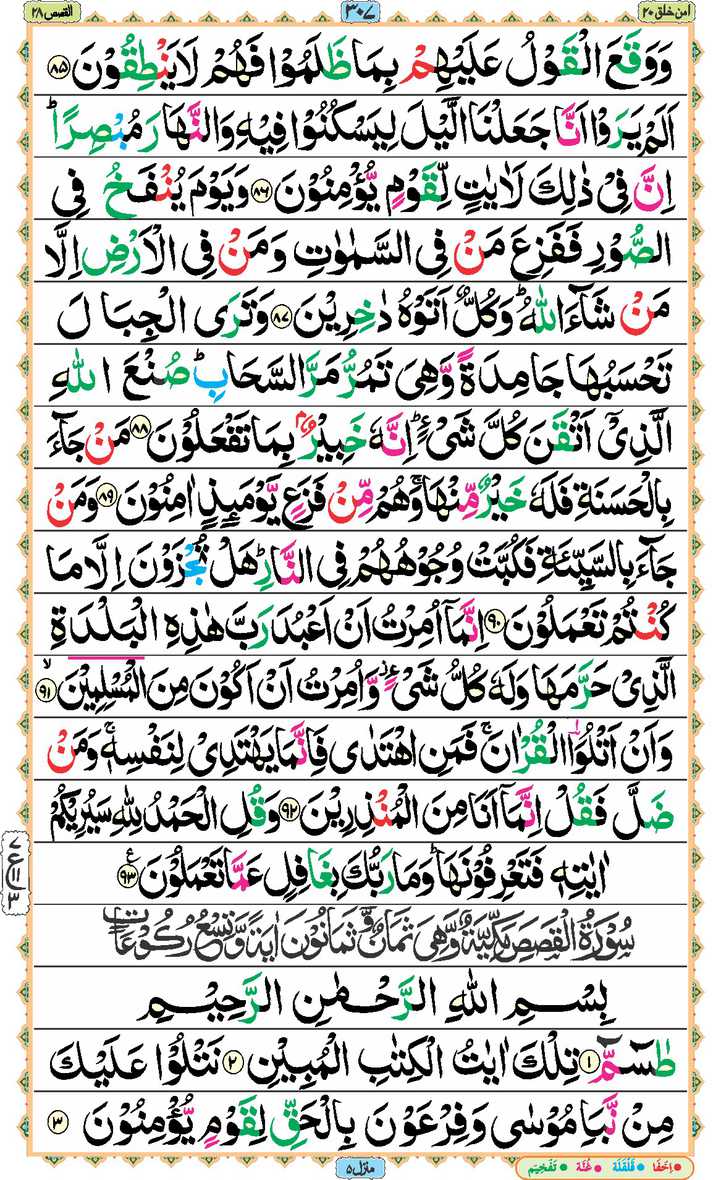 امن خلق ۲۰
۳۰۷
القصص ۲۸
وَوَقَعَ الْقَوْلُ عَلَيْهِمْ بِمَا ظَلَمُوْا فَهُمْ لَا يَنْطِقُوْنَ ۝۸۵
اَلَمْ يَرَوْا اَنَّا جَعَلْنَا الَّيْلَ لِيَسْكُنُوْا فِيْهِ وَالنَّهَارَ مُبْصِرًا ؕ
اِنَّ فِىْ ذٰلِكَ لَاٰيٰتٍ لِّقَوْمٍ يُّؤْمِنُوْنَ ۝۸۶ وَيَوْمَ يُنْفَخُ فِى
الصُّوْرِ فَفَزِعَ مَنْ فِى السَّمٰوٰتِ وَمَنْ فِى الْاَرْضِ اِلَّا
مَنْ شَآءَ اللّٰهُ ؕ وَكُلٌّ اَتَوْهُ دٰخِرِيْنَ ۝۸۷ وَتَرَى الْجِبَالَ
تَحْسَبُهَا جَامِدَةً وَّهِىَ تَمُرُّ مَرَّ السَّحَابِ ؕ صُنْعَ اللّٰهِ
الَّذِىْۤ اَتْقَنَ كُلَّ شَىْءٍ ؕ اِنَّهٗ خَبِيْرٌۢ بِمَا تَفْعَلُوْنَ ۝۸۸ مَنْ جَآءَ
بِالْحَسَنَةِ فَلَهٗ خَيْرٌ مِّنْهَا ۚ وَهُمْ مِّنْ فَزَعٍ يَّوْمَئِذٍ اٰمِنُوْنَ ۝۸۹ وَمَنْ
جَآءَ بِالسَّيِّئَةِ فَكُبَّتْ وُجُوْهُهُمْ فِى النَّارِ ؕ هَلْ تُجْزَوْنَ اِلَّا مَا
كُنْتُمْ تَعْمَلُوْنَ ۝۹۰ اِنَّمَاۤ اُمِرْتُ اَنْ اَعْبُدَ رَبَّ هٰذِهِ الْبَلْدَةِ
الَّذِىْ حَرَّمَهَا وَلَهٗ كُلُّ شَىْءٍ ؗ وَّاُمِرْتُ اَنْ اَكُوْنَ مِنَ الْمُسْلِمِيْنَ ۙ۝۹۱
وَاَنْ اَتْلُوَا الْقُرْاٰنَ ۚ فَمَنِ اهْتَدٰى فَاِنَّمَا يَهْتَدِىْ لِنَفْسِهٖ ۚ وَمَنْ
ضَلَّ فَقُلْ اِنَّمَاۤ اَنَا مِنَ الْمُنْذِرِيْنَ ۝۹۲ وَقُلِ الْحَمْدُ لِلّٰهِ سَيُرِيْكُمْ
اٰيٰتِهٖ فَتَعْرِفُوْنَهَا ؕ وَمَا رَبُّكَ بِغَافِلٍ عَمَّا تَعْمَلُوْنَ ۝۹۳
سُوْرَةُ الْقَصَصِ مَكِّيَّةٌ وَّهِىَ ثَمَانٌ وَّثَمَانُوْنَ اٰيَةً وَّتِسْعُ رُكُوْعَاتٍ
بِسْمِ اللّٰهِ الرَّحْمٰنِ الرَّحِيْمِ
طٰسٓمّٓ ۝۱ تِلْكَ اٰيٰتُ الْكِتٰبِ الْمُبِيْنِ ۝۲ نَتْلُوْا عَلَيْكَ
مِنْ نَّبَاِ مُوْسٰى وَفِرْعَوْنَ بِالْحَقِّ لِقَوْمٍ يُّؤْمِنُوْنَ ۝۳
منزل ۵
اِخْفَا قَلْقَلَة غُنَّة تَفْخِيْم